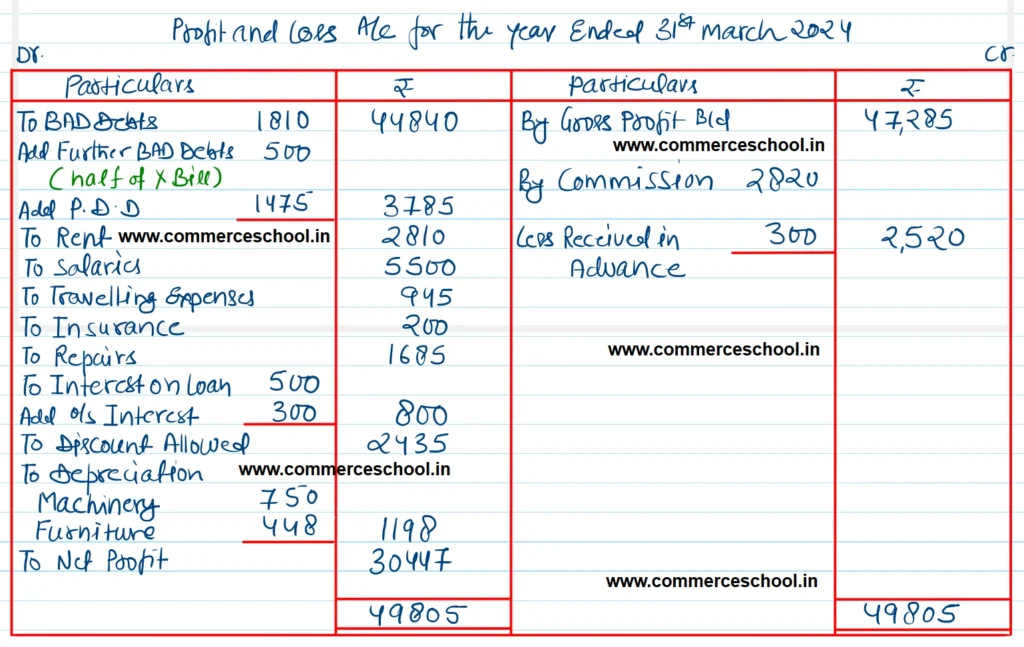 Profit and Loss A/c for the year Ended 31st March 2024
Dr. Cr.
Particulars ₹ Particulars ₹
To BAD Debts 1810 44840 By Gross Profit B/d 47,285
www.commerceschool.in
Add Further BAD Debts 500
(half of X Bill) By Commission 2820
Add P.D.D 1475 3785
To Rent www.commerceschool.in 2810 Less Received in 300 2,520
To Salaries 5500 Advance
To Travelling Expenses 945
To Insurance 200
To Repairs 1685 www.commerceschool.in
To Interest on Loan 500
Add o/s Interest 300 800
To Discount Allowed 2435
To Depreciation www.commerceschool.in
Machinery 750
Furniture 448 1198
To Net Profit 30447
www.commerceschool.in
49805 49805